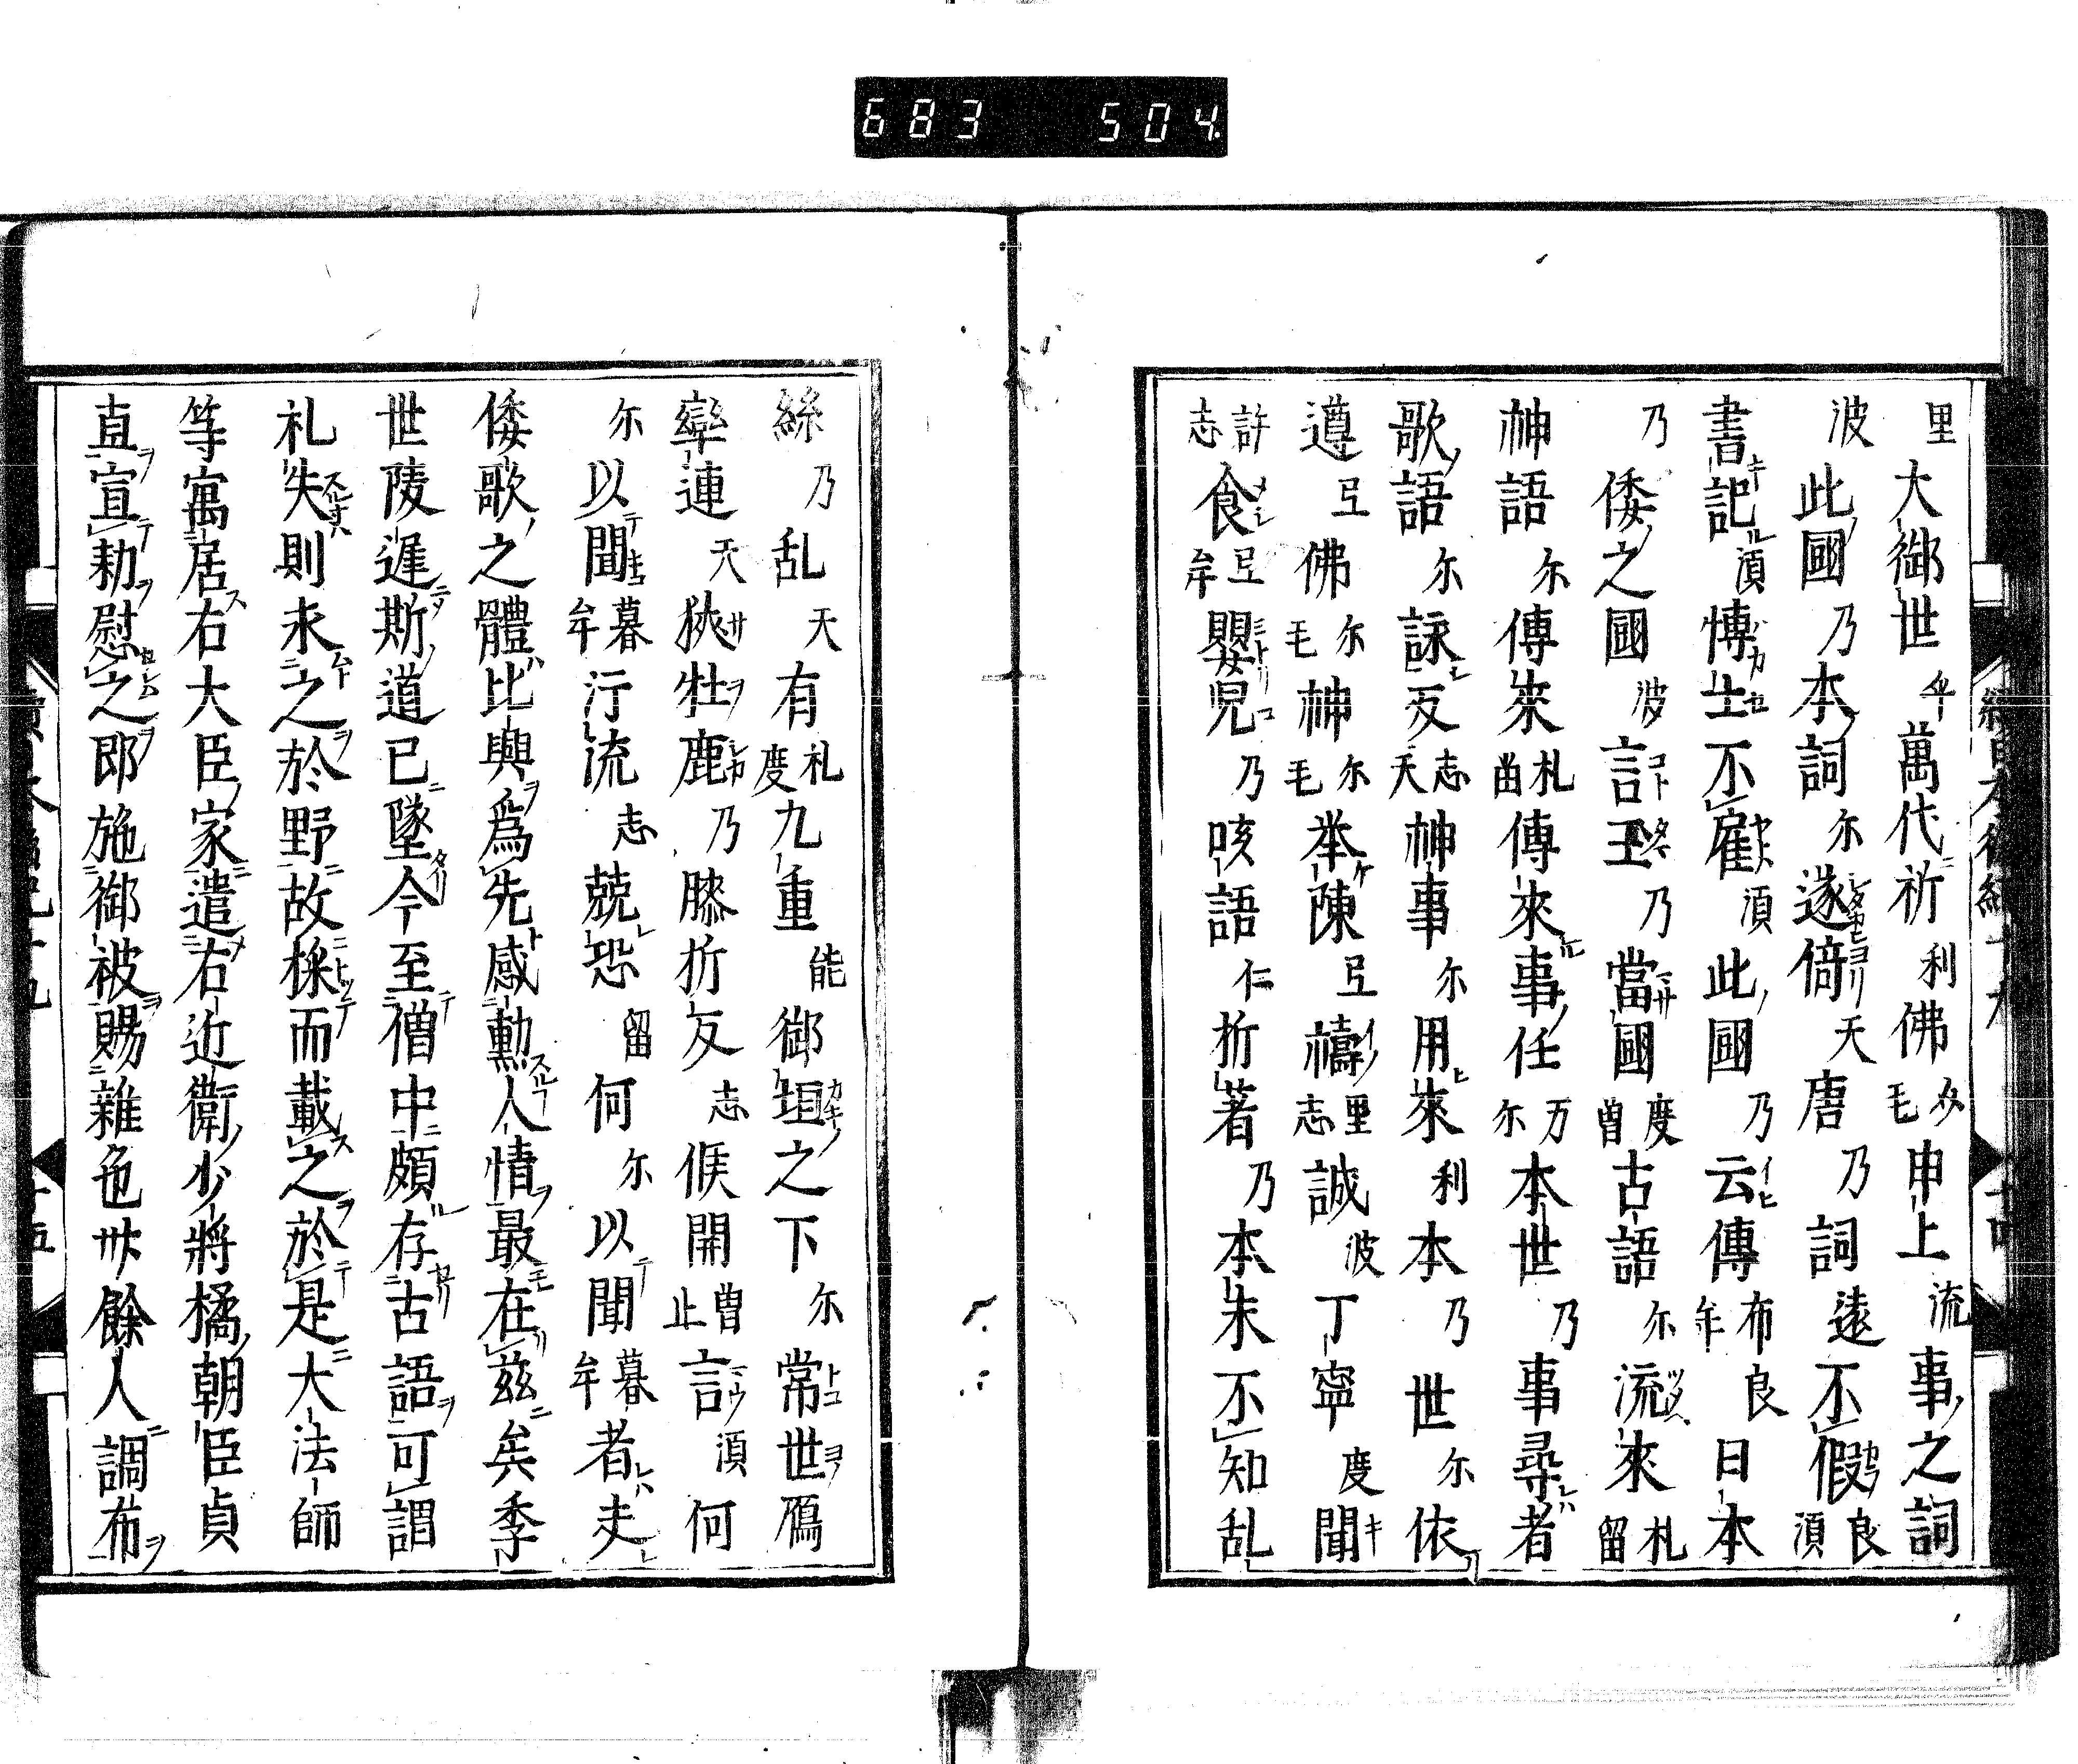 683 504.
里大御世乎萬代祈利佛尓毛申上流事之詞
波此國乃本詞尓逐倚天唐乃詞遠不假良須
書記須博士不雇須此國乃云傳布良日本
乃倭之國波言玉乃當國度曽古語尓流來礼留
神語尓傳來礼留傳來事任万尓本世乃事尋者
歌語尓詠反志天神事尓用來利本乃世尓依
遵弖佛尓毛神尓毛挙陳弖禱里志誠波丁寧度聞
許志食弖牟嬰兒乃咳語仁折著乃本末不知乱
絲乃乱天有礼度九重能御垣之下尓常世鴈
率連天狹牡鹿乃膝折反志候開曽止言須何
尓以聞暮牟汙流志兢恐留何尓以聞暮牟者夫
倭歌之體比興爲先感動人情最在茲矣季
世陵遲斯道已墜今至僧中頗存古語可謂
礼失則求之於野故採而載之於是大法師
等寓居右大臣家遣右近衛少將橘朝臣貞
直宣勅慰之即施御被賜雜色卅餘人調布